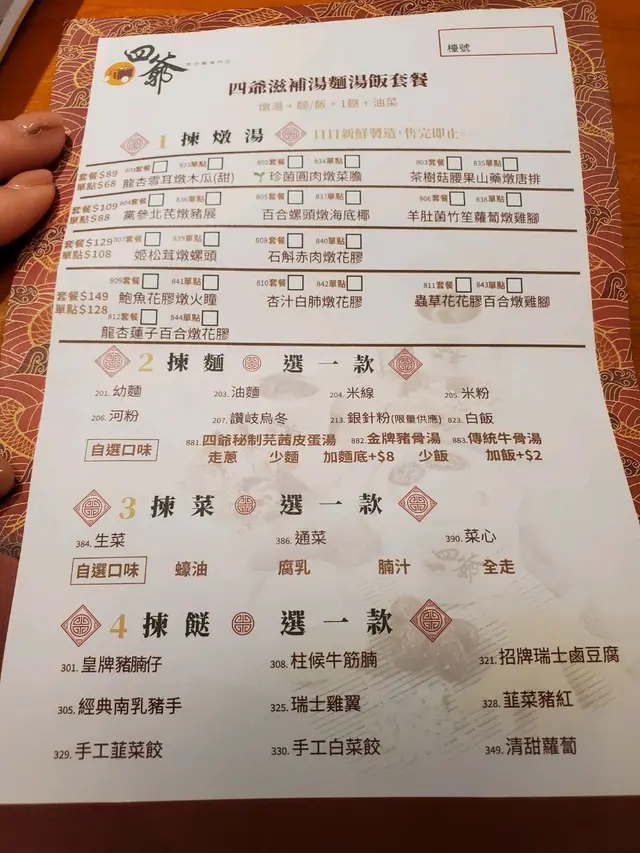 四爺
檯號
四爺滋補湯麵湯飯套餐
燉湯+麵/飯+1餸+油菜
1 揀燉湯 日日新鮮製造,售完即止。
套餐$89 801套餐 833單點 802套餐 834單點 803套餐 835單點
單點$68 龍杏雪耳燉木瓜(甜) 珍菌圓肉燉菜膽 茶樹菇腰果山藥燉唐排
套餐$109 804套餐 836單點 805套餐 837單點 806套餐 838單點
單點$88 黨參北芪燉豬展 百合螺頭燉海底椰 羊肚菌竹笙蘿蔔燉雞腳
套餐$129 807套餐 839單點 808套餐 840單點
單點$108 姬松茸燉螺頭 石斛赤肉燉花膠
809套餐 841單點 810套餐 842單點 811套餐 843單點
套餐$149 鮑魚花膠燉火瞳 杏汁白肺燉花膠 蟲草花花膠百合燉雞腳
單點$128 812套餐 844單點
龍杏蓮子百合燉花膠
2 揀麵 選一款
201. 幼麵 203. 油麵 204. 米線 205. 米粉
206. 河粉 207. 讚岐烏冬 213. 銀針粉(限量供應) 823. 白飯
自選口味 881. 四爺秘制芫茜皮蛋湯 882. 金牌豬骨湯 883. 傳統牛骨湯
走蔥 少麵 加麵底+$8 少飯 加飯+$2
3 揀菜 選一款
384. 生菜 386. 通菜 390. 菜心
自選口味 蠔油 腐乳 腩汁 全走
4 揀餸 選一款
301. 皇牌豬腩仔 308. 柱候牛筋腩 321. 招牌瑞士鹵豆腐
305. 經典南乳豬手 325. 瑞士雞翼 328. 韮菜豬紅
329. 手工韮菜餃 330. 手工白菜餃 349. 清甜蘿蔔